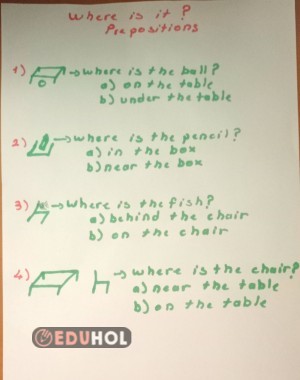 Where is it?
Prepositions
1) → where is the ball?
a) on the table
b) under the table
2) → where is the pencil?
a) in the box
b) near the box
3) → where is the fish?
a) behind the chair
b) on the chair
4) → where is the chair?
a) near the table
b) on the table
EDUHOL